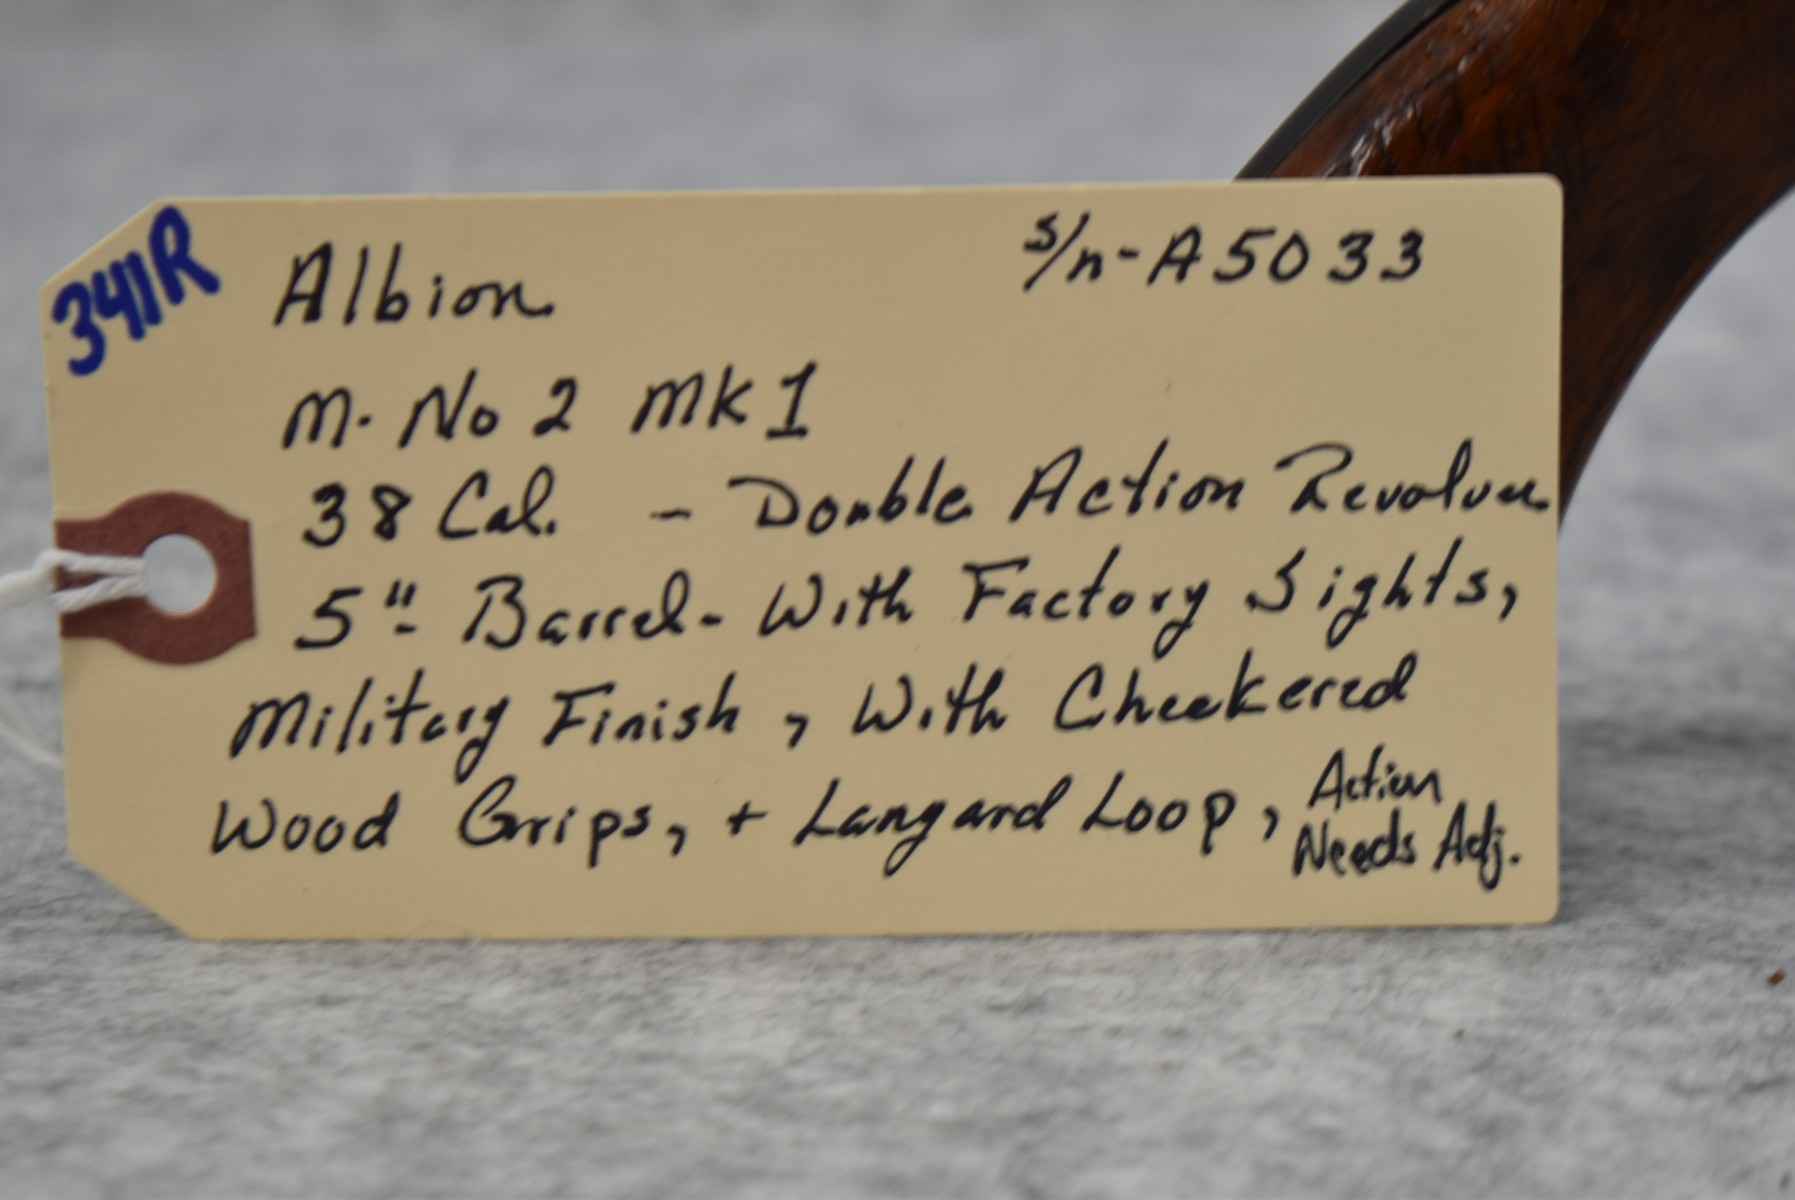 341R
Albion s/n-A5033
M. No 2 MK 1
38 Cal. - Double Action Revolver
5" Barrel - With Factory Sights,
Military Finish, With Checkered
Wood Grips, + Lanyard Loop, Action
Needs Adj.